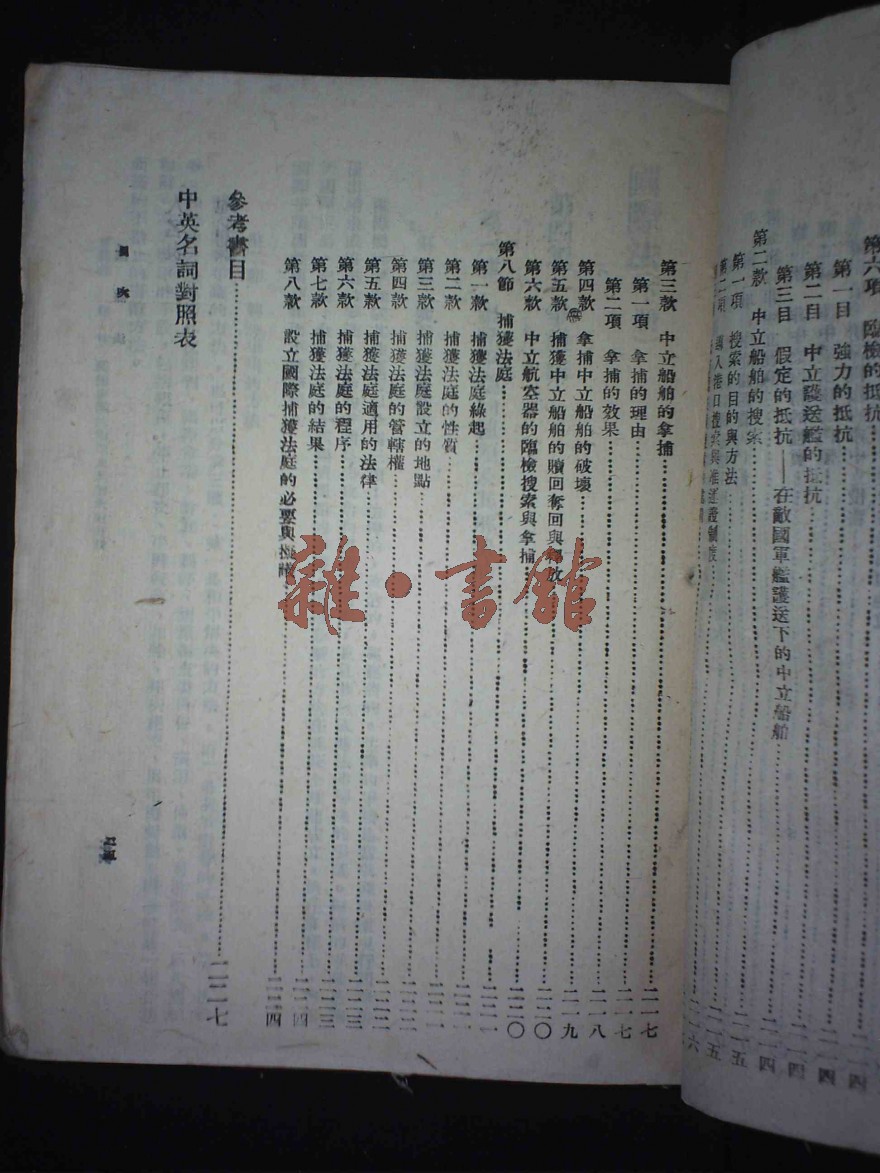 第六項 臨檢的抵抗
第一目 強力的抵抗……二一四
第二目 中立護送艦的抵抗……二一四
第三目 假定的抵抗——在敵國軍艦護送下的中立船舶……二一四
第二款 中立船舶的搜索……二一五
第一項 搜索的目的與方法……二一五
第三款 中立船舶的拿捕……二一七
第一項 拿捕的理由……二一七
第二項 拿捕的效果……二一八
第四款 拿捕中立船舶的破壞……二一九
第五款 捕獲中立船舶的贖回奪回與釋放……二二〇
第六款 中立航空器的臨檢搜索與拿捕……二二〇
第八節 捕獲法庭……二二一
第一款 捕獲法庭緣起……二二一
第二款 捕獲法庭的性質……二二一
第三款 捕獲法庭設立的地點……二二二
第四款 捕獲法庭的管轄權……二二二
第五款 捕獲法庭適用的法律……二二三
第六款 捕獲法庭的程序……二二三
第七款 捕獲法庭的結果……二二四
第八款 設立國際捕獲法庭的必要與……二二四
參考書目……二二七
中英名詞對照表
目次
雜·書館